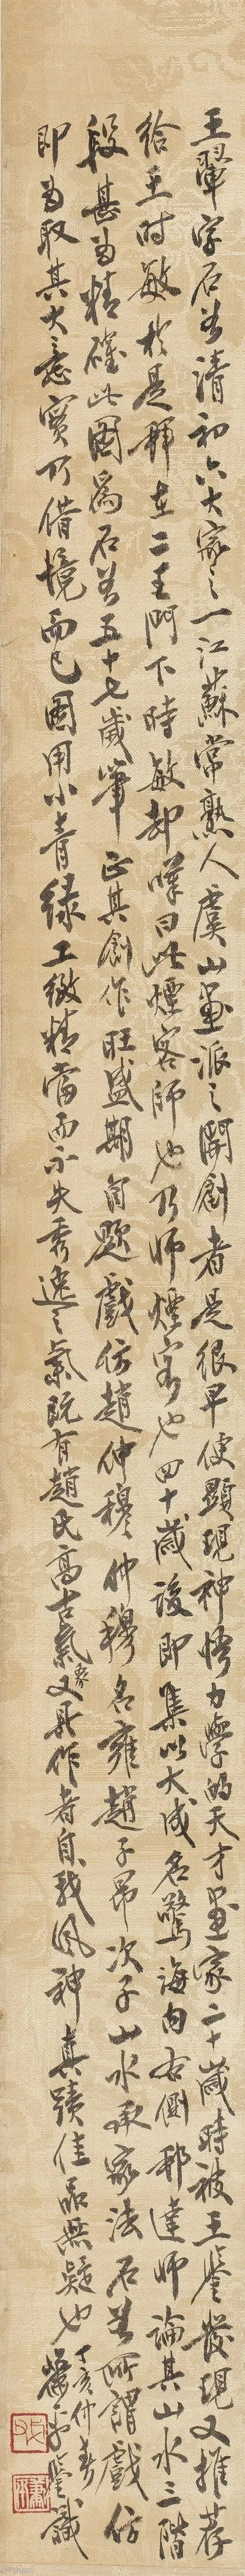 王翬字石谷清初六大家之一江蘇常熟人虞山畫派之開創者是很早便顯現神悟力學的天才畫家二十歲時被王鑒發現又推荐
給王时敏於是拜在二王門下時敏却嘆曰此煙客師也乃师煙客也四十歲後即集以大成名驚海内右側邢達师論其山水三階
段甚为精確此图爲石谷五十七歲筆正其創作旺盛期自題戲仿趙仲穆仲穆名雍趙子昂次子山水承家法石谷所謂戲仿
即为取其大意實乃借境而已图用小青綠工緻精當而不失秀逸之氣既有趙氏高古氣象又具作者自我风神真蹟佳品無疑也丁亥仲春
蕭平鑒識